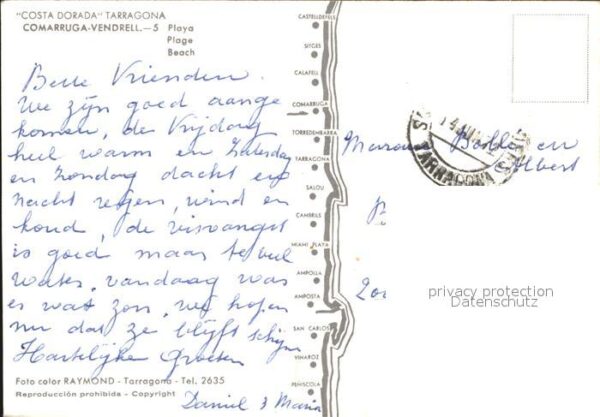 "COSTA DORADA" TARRAGONA
COMARRUGA-VENDRELL.-5 Playa
Plage
Beach
Beste Vrienden.
We zijn goed aange
komen, de Vrijdag
heel warm en Zaterdag
en Zondag dacht en
nacht regen, wind en
koud, de visvangst
is goed maar te veel
water, vandaag was
er wat zon, wij hopen
nu dat ze blijft schijnen
Hartelijke Groeten
Daniel & Maria
Foto color RAYMOND - Tarragona - Tel. 2635
Reproducción prohibida - Copyright
CASTELLDEFELS
SITGES
CALAFELL
COMARRUGA
TORREDEMBARRA
TARRAGONA
SALOU
CAMBRILS
MIAMI PLAYA
AMPOLLA
AMPOSTA
SAN CARLOS
VINAROZ
PEÑISCOLA
TARRAGONA
en
Albert
privacy protection
Datenschutz